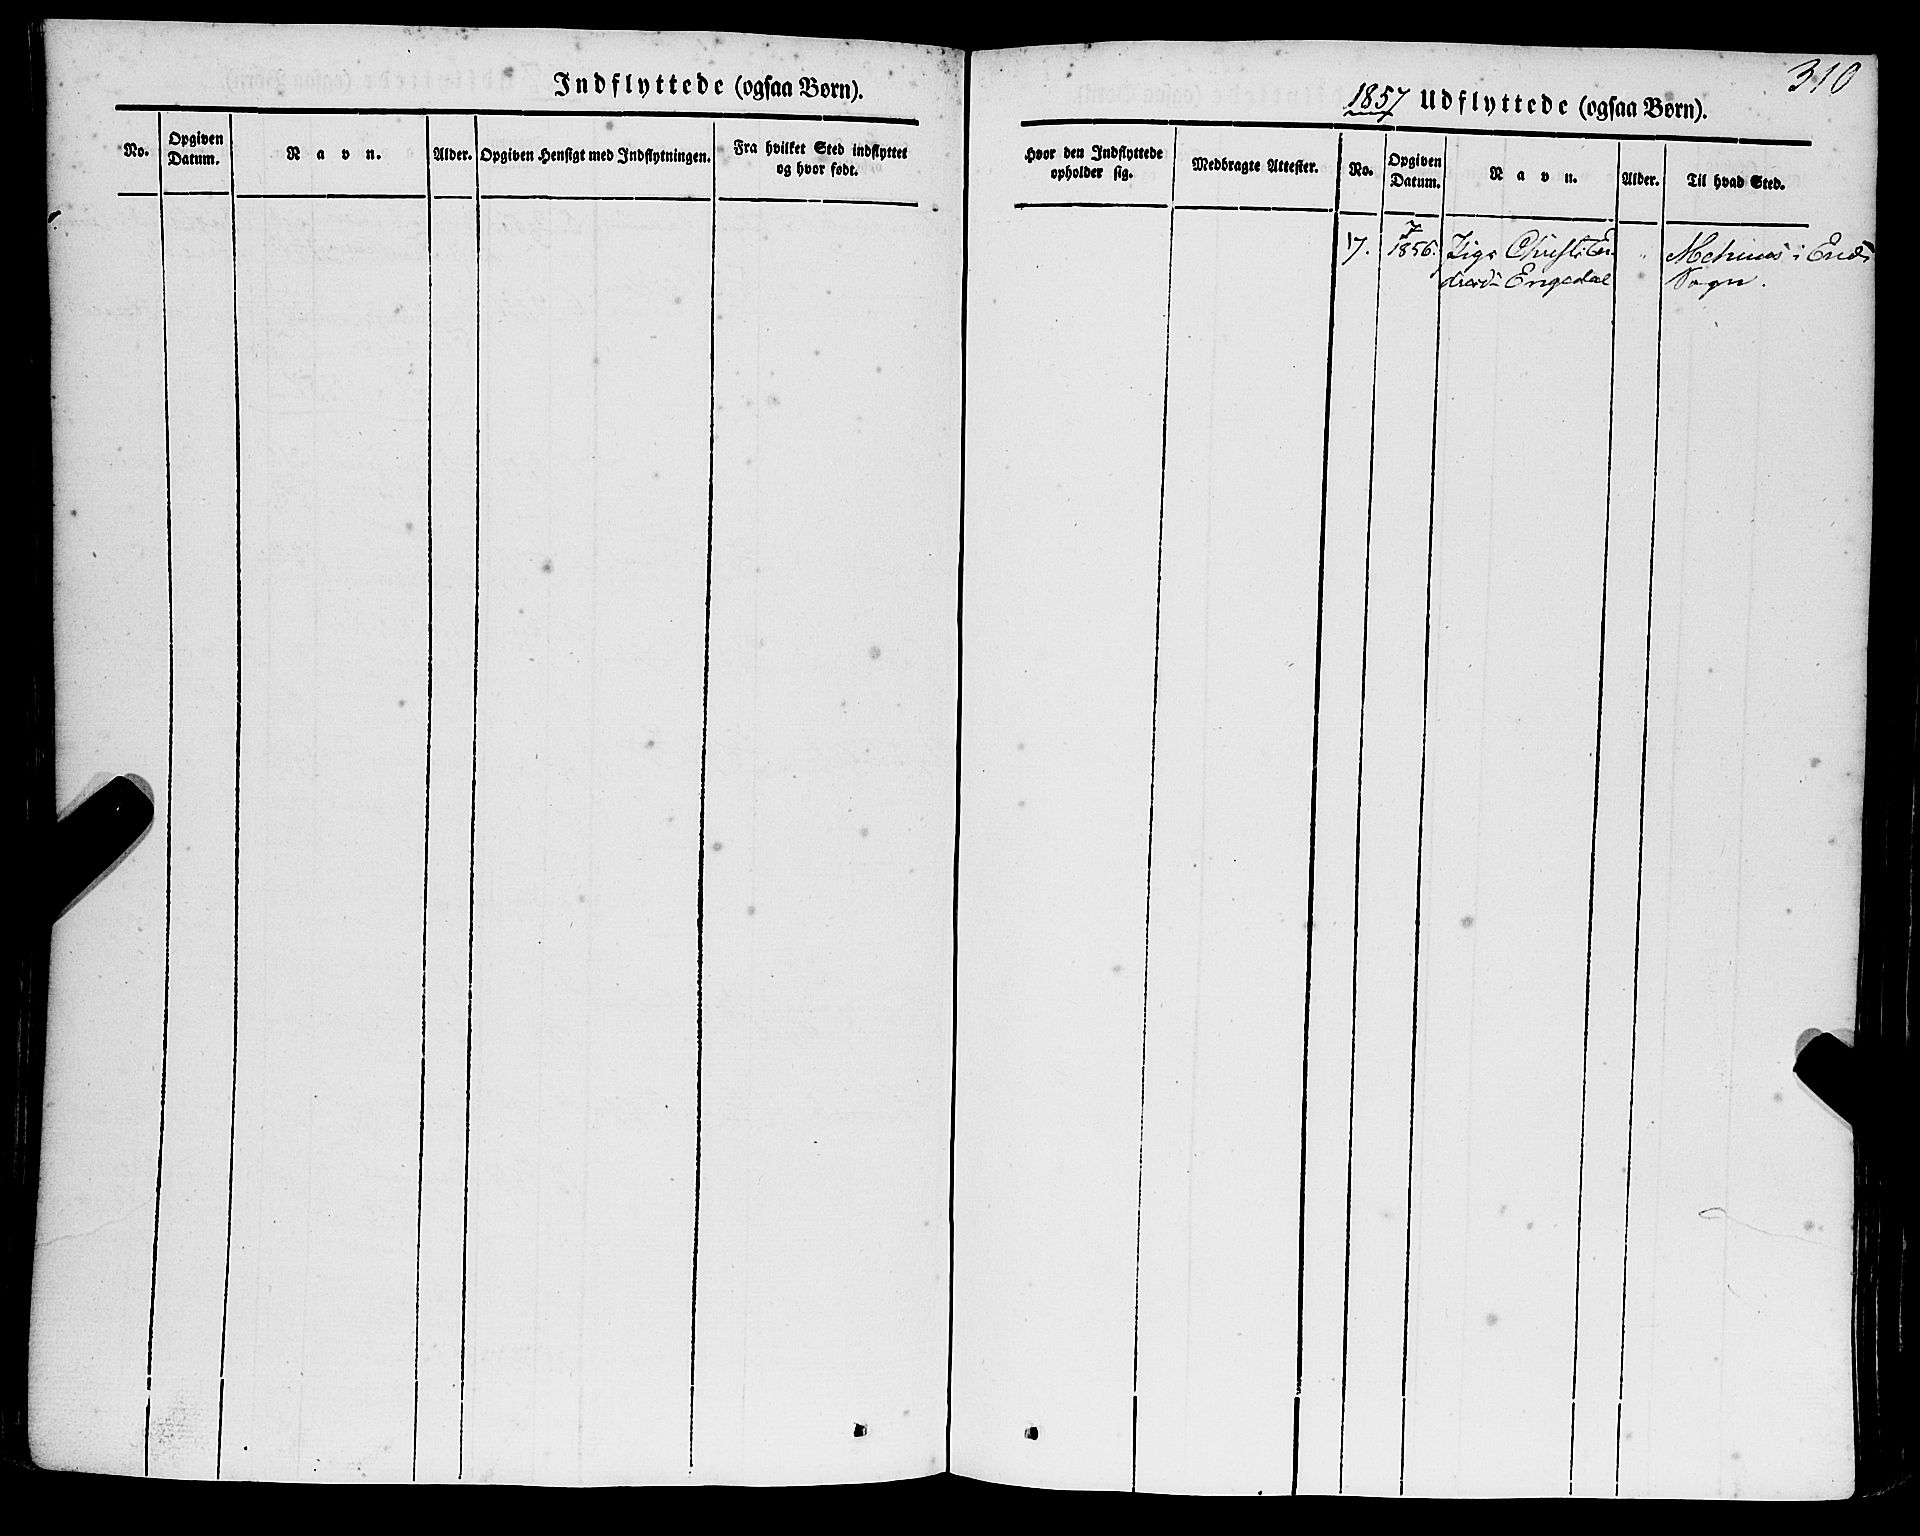 Indflyttede (ogsaa Børn).
No.
Opgiven
Datum.
Navn.
Alder.
Opgiven Hensigt med Indflytningen.
Fra hvilket Sted indflyttet
og hvor født.
310
1857 Udflyttede (ogsaa Børn).
Hvor den Indflyttede
opholder sig.
Medbragte Attester.
No.
Opgiven
Datum.
Navn.
Alder.
Til hvad Sted.
17.
7
1856.
Pige Christi En
dresd- Engedal
"
i Eids
Sogn.